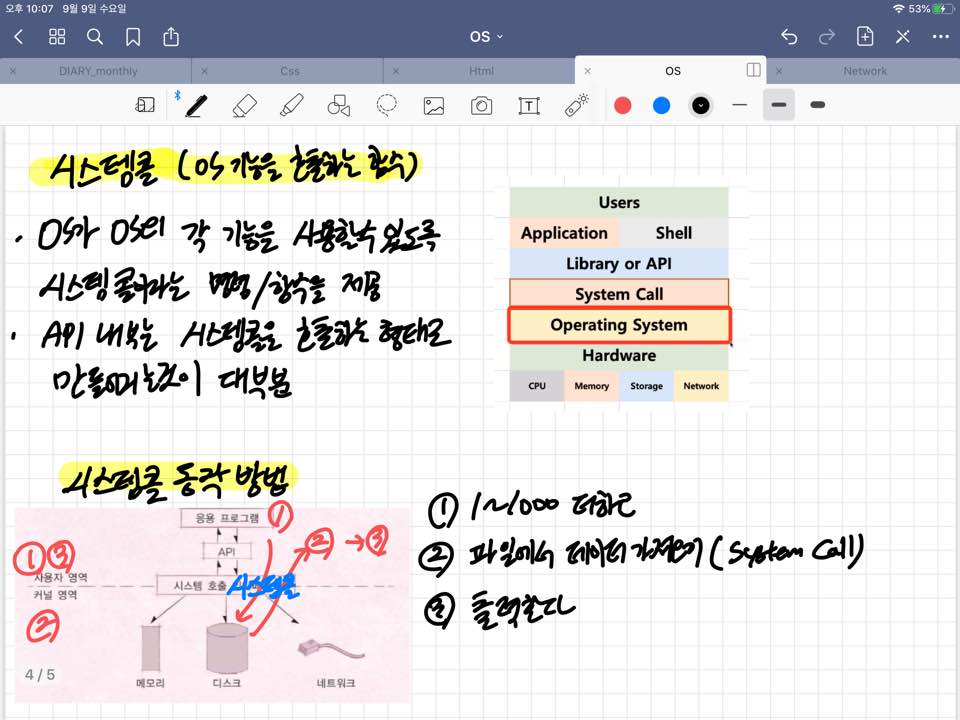 오후 10:07 9월 9일 수요일
53%
OS
DIARY_monthly
Css
Html
OS
Network
시스템콜 (OS 기능을 호출하는 함수)
· OS가 OS의 각 기능을 사용할수 있도록
시스템콜이라는 명령/함수를 제공
· API 내부는 시스템콜을 호출하는 형태로
만들어지는것이 대부분
Users
Application Shell
Library or API
System Call
Operating System
Hardware
CPU Memory Storage Network
시스템콜 동작 방법
응용 프로그램 ①
API ② → ③
① ③
사용자 영역
시스템 호출 시스템콜
커널 영역
②
메모리 디스크 네트워크
4 / 5
① 1~1000 더하고
② 파일에서 데이터 가져오기 (System Call)
③ 출력한다